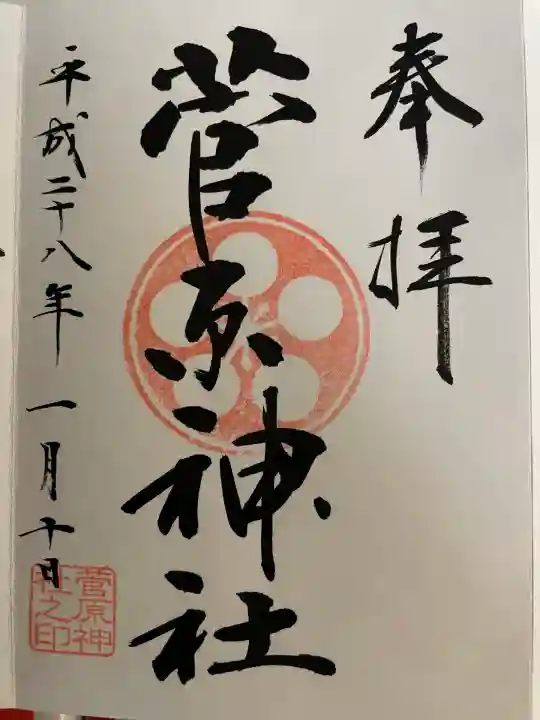 奉拝
菅原神社
平成二十八年一月十日
菅原神
社之印